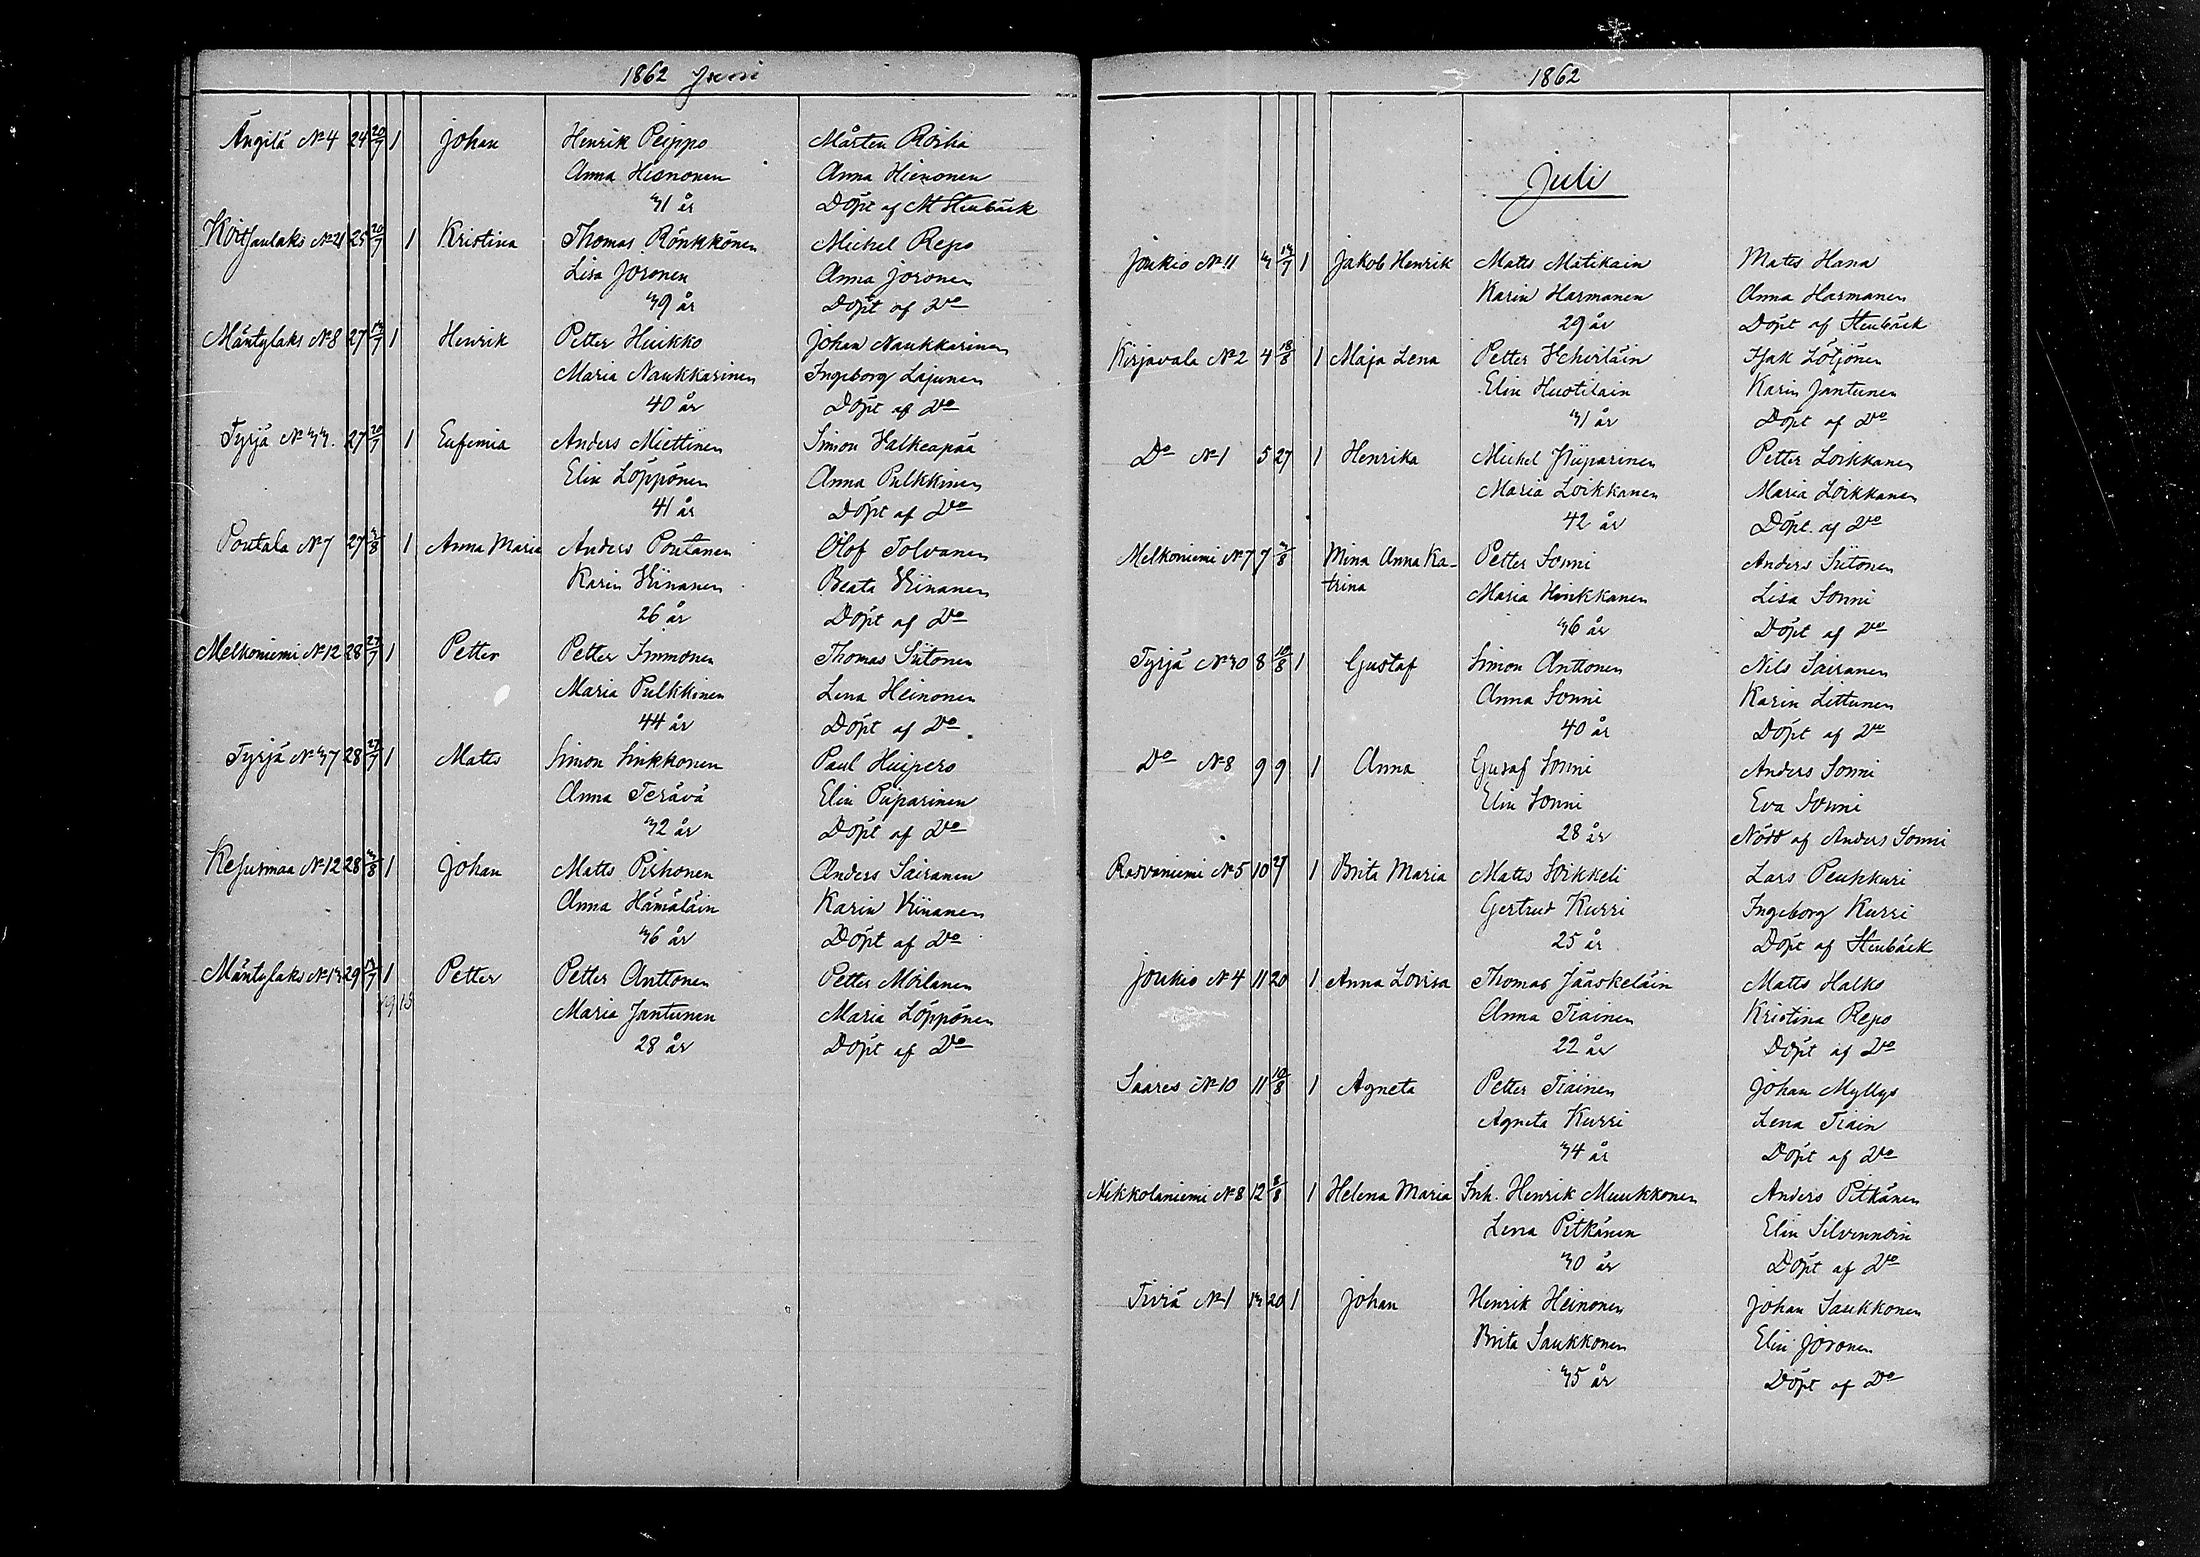 1862 Juni
Ängilä № 4 24 20/7 1 Johan Henrik Peippo Mårten Roiha
Anna Hienonen Anna Hienonen
31 år Döpt af M Stenbäck
Koitsanlaks № 21 25 20/7 1 Kristina Thomas Rönkkönen Michel Repo
Lisa Joronen Anna Joronen
39 år Döpt af Do
Mäntylaks № 8 27 13/7 1 Henrik Petter Huikko Johan Naukkarinen
Maria Naukkarinen Ingeborg Lajunen
40 år Döpt af Do
Tyrjä № 33. 27 20/7 1 Eufemia Anders Miettinen Simon Halkeapää
Elin Löppönen Anna Pulkkinen
41 år Döpt af Do
Poutala № 7 27 3/8 1 Anna Maria Anders Poutanen Olof Tolvanen
Karin Kiinanen Beata Kiinanen
26 år Döpt af Do
Melkoniemi № 12 28 27/7 1 Petter Petter Immonen Thomas Siitonen
Maria Pulkkinen Lena Heinonen
44 år Döpt af Do
Tyrjä № 37 28 27/7 1 Matts Simon Sinkkonen Paul Huipero
Anna Terävä Elin Piiparinen
32 år Döpt af Do
Kesusmaa № 12 28 3/8 1 Johan Matts Pirhonen Anders Sairanen
Anna Hämäläin Karin Kiinanen
36 år Döpt af Do
Mäntylaks № 13 29 13/7 1 Petter Petter Anttonen Petter Moilanen
19 13 Maria Jantunen Maria Löppönen
28 år Döpt af Do
1862
Juli
Joukio № 11 3 13/7 1 Jakob Henrik Matts Matikain Matts Hana
Karin Harmanen Anna Harmanen
29 år Döpt af Stenbäck
Kirjavala № 2 4 18/8 1 Maja Lena Petter Ihcviläin Isak Lötjönen
Elin Huotilain Karin Jantunen
31 år Döpt af Do
Do № 1 5 27 1 Henrika Michel Piiparinen Petter Loikkanen
Maria Loikkanen Maria Loikkanen
42 år Döpt af Do
Melkoniemi № 7 7 3/8 Mina Anna Ka- Petter Sonni Anders Siitonen
trina Maria Hinkkanen Lisa Sonni
36 år Döpt af Do
Tyrjä № 30 8 10/8 1 Gustaf Simon Anttonen Nils Sairanen
Anna Sonni Karin Littunen
40 år Döpt af Do
Do № 8 9 9 1 Anna Gusaf Sonni Anders Sonni
Elin Sonni Eva Sonni
28 år Nödd af Anders Sonni
Rasvaniemi № 5 10 27 1 Brita Maria Matts Soikkeli Lars Peukkuri
Gertrud Kurri Ingeborg Kurri
25 år Döpt af Stenbäck
Joukio № 4 11 20 1 Anna Lovisa Thomas Jääskeläin Matts Halko
Anna Tiainen Kristina Repo
22 år Döpt af Do
Saares № 10 11 10/8 1 Agneta Petter Tiainen Johan Myllys
Agneta Kurri Lena Tiain
34 år Döpt af Do
Mikkolaniemi № 8 12 3/8 1 Helena Maria Inh. Henrik Muukkonen Anders Pitkänen
Lena Pitkänen Elin Silvennoin
30 år Döpt af Do
Tiviä № 1 13 20 1 Johan Henrik Heinonen Johan Saukkonen
Brita Saukkonen Elin Joronen
35 år Döpt af Do